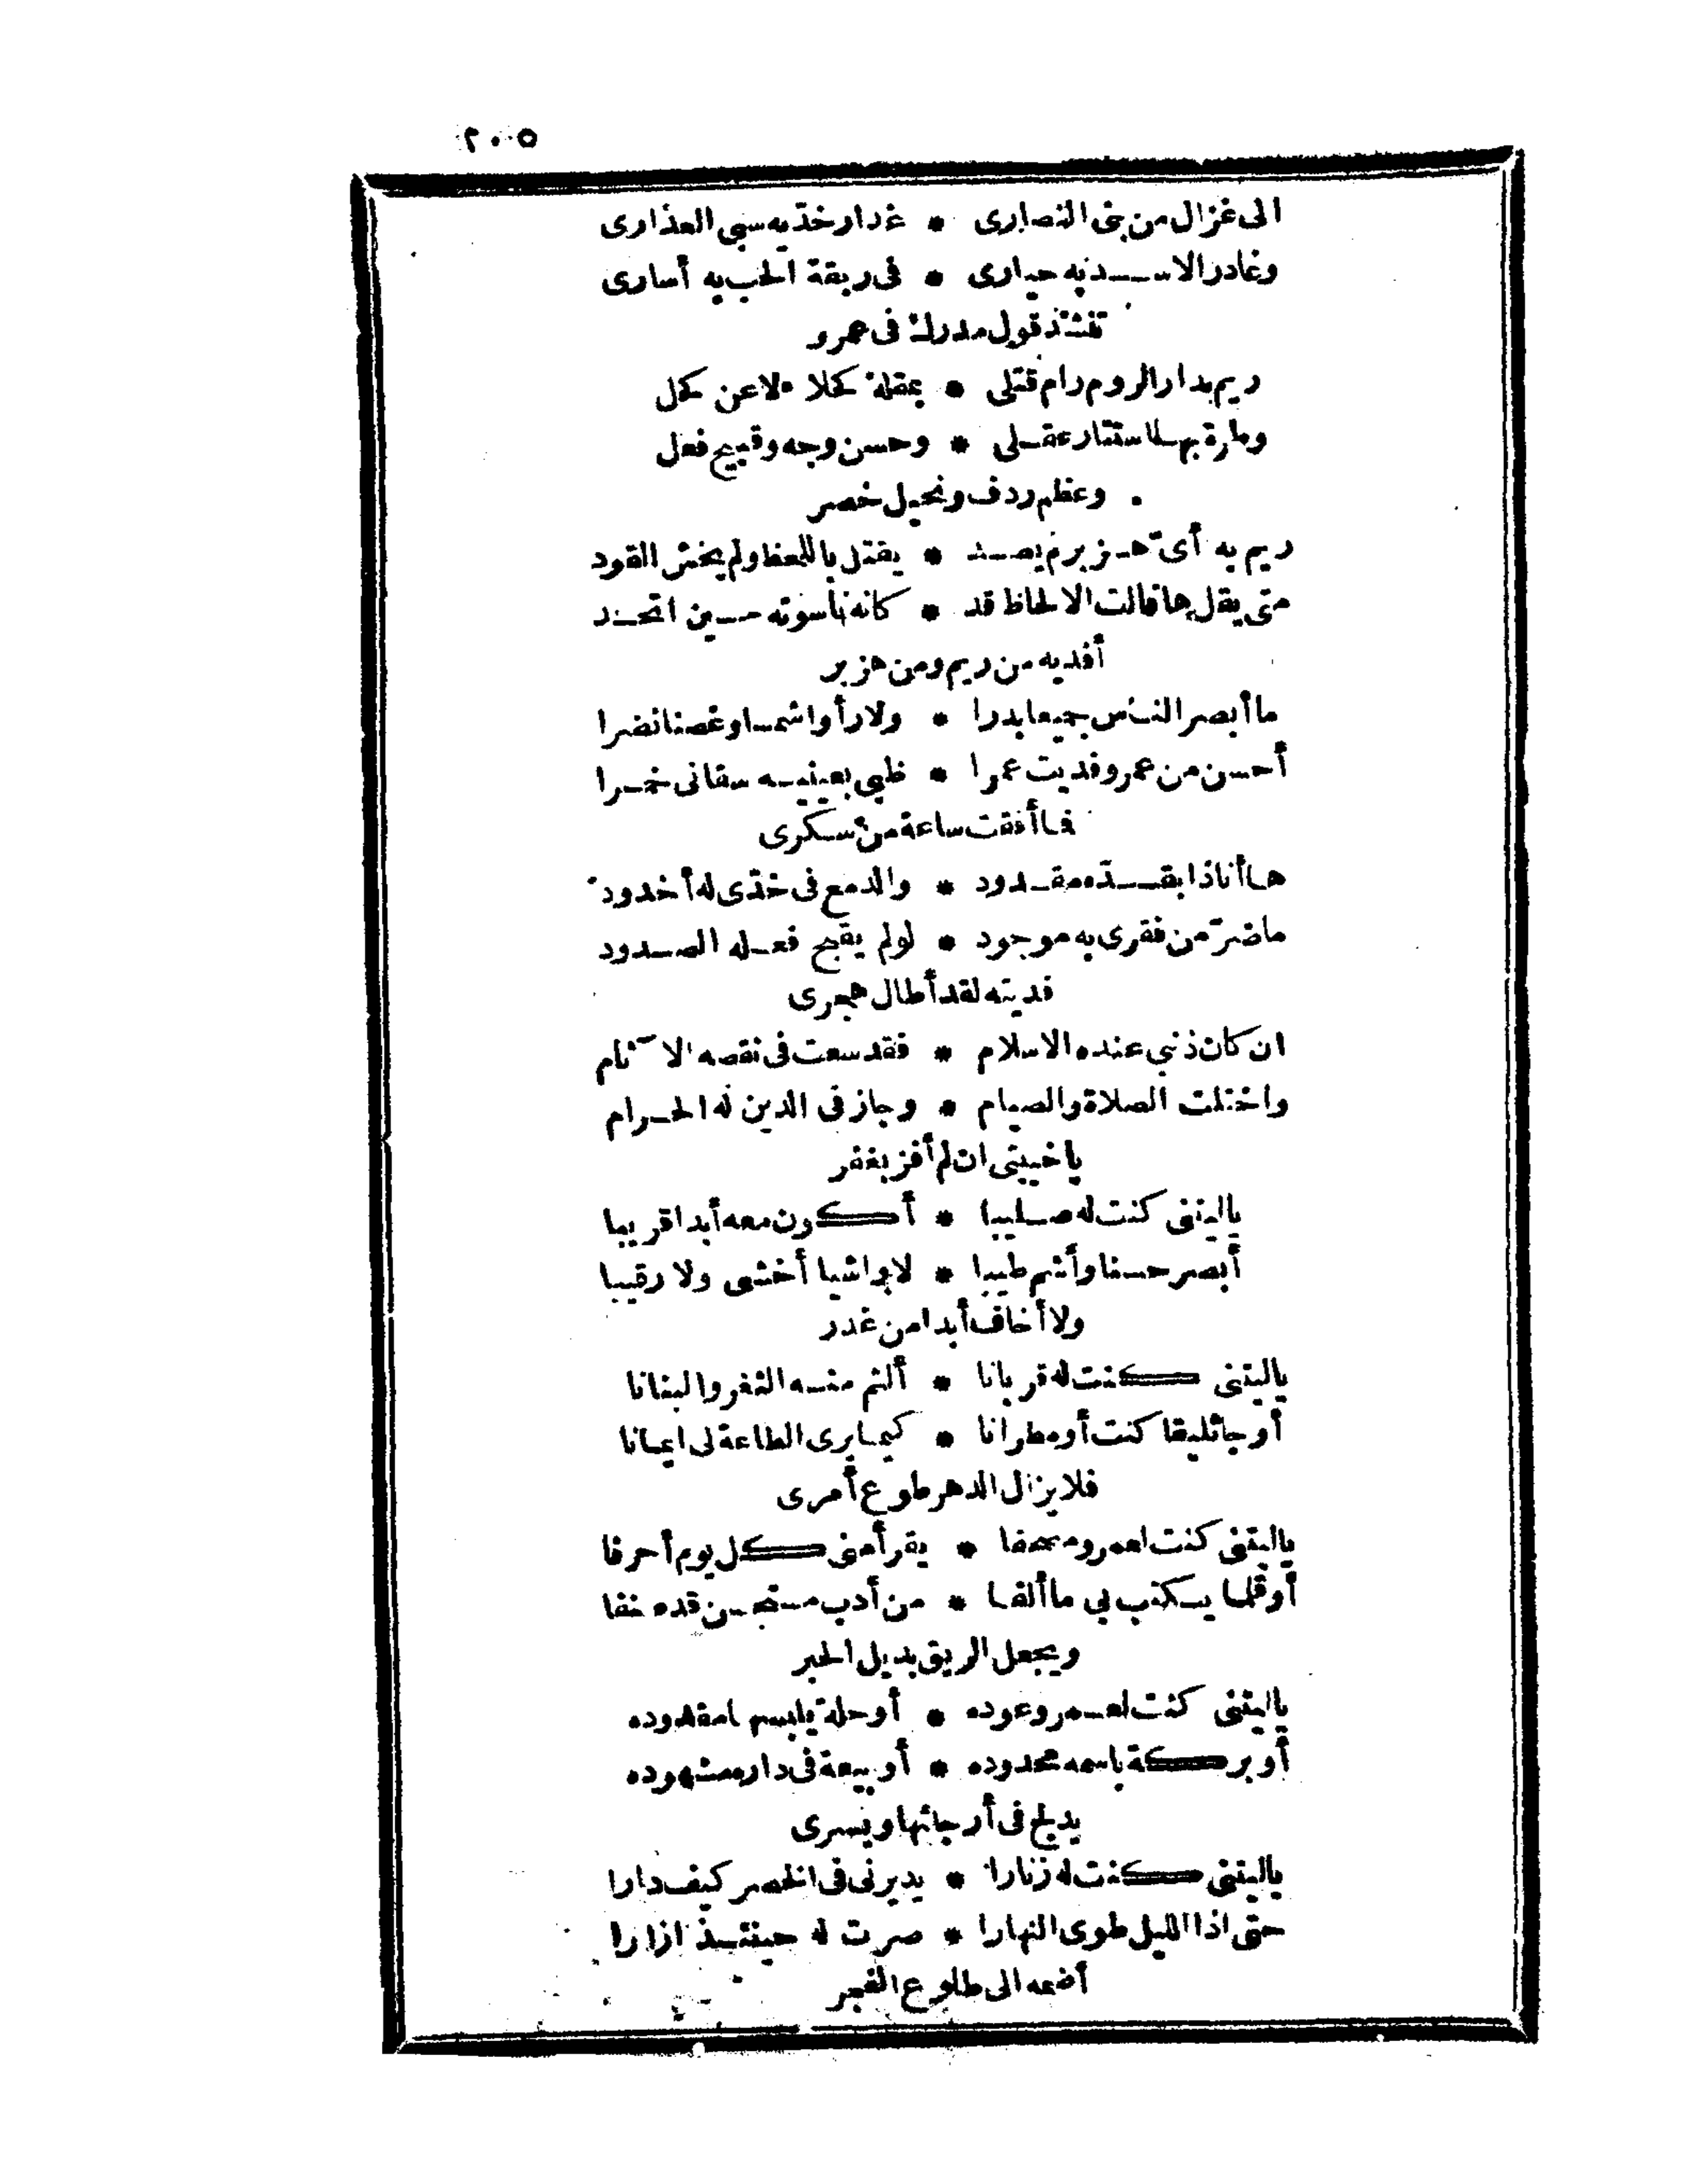 ٢٠٥
الى غزال من بنى النصارى * عذار خديه سبى العذارى
وغادر الاسد به حيارى * فى ربقة الحب به أسارى
تنشد قول مدرك فى عمرو
ريم بدار الروم رام قتلى * بمقلة كحلاء لا عن كحل
وطرة بها استثار عقلى * وحسن وجه وقبيح فعل
وعظم ردف ونحيل خصر
ريم به أىّ هزبر لم يصد * يقتل باللحظ ولم يخش القود
متى يقل ها قالت الالحاظ قد * كانه ناسوته حين اتحد
أفديه من ريم ومن هزبر
ما أبصر الناس جميعا بدرا * ولا رأوا شمسا وغصنا نضرا
أحسن من عمرو فديت عمرا * ظبى بعينيه سقانى خمرا
فما أفقت ساعة من سكرى
ها أنا ذا بقدّه مقدود * والدمع فى خدّى له أخدود
ما ضرّ من فقرى به موجود * لو لم يقبح فعله الصدود
فديته لقد أطال هجرى
ان كان ذنبى عنده الاسلام * فقد سعت فى نقصه الآثام
واختلت الصلاة والصيام * وجاز فى الدين له الحرام
يا خيبتى ان لم أفز بغفر
يا ليتنى كنت له صليبا * أكون معه أبدا قريبا
أبصر حسنا وأشم طيبا * لا واشيا أخشى ولا رقيبا
ولا أخاف أبدا من غدر
يا ليتنى كنت له قربانا * ألثم منه الثغر والبنانا
أو جاثليقا كنت أو مطرانا * كيما يرى الطاعة لى ايمانا
فلا يزال الدهر طوع أمرى
يا ليتنى كنت لعمرو مصحفا * يقرأ منى كل يوم أحرفا
أو قلما يكتب بى ما ألفا * من أدب مستحسن قد صنفا
ويجعل الريق بديل الحبر
يا ليتنى كنت لعمرو عوده * أو حلة يلبسها مقدوده
أو بركة باسمه محدوده * أو بيعة فى داره مشهوده
يدلج فى أرجائها ويسرى
يا ليتنى كنت له زنارا * يديرنى فى الخصر كيف دارا
حتى اذا الليل طوى النهارا * صرت له حينئذ ازارا
أضمه الى طلوع الفجر